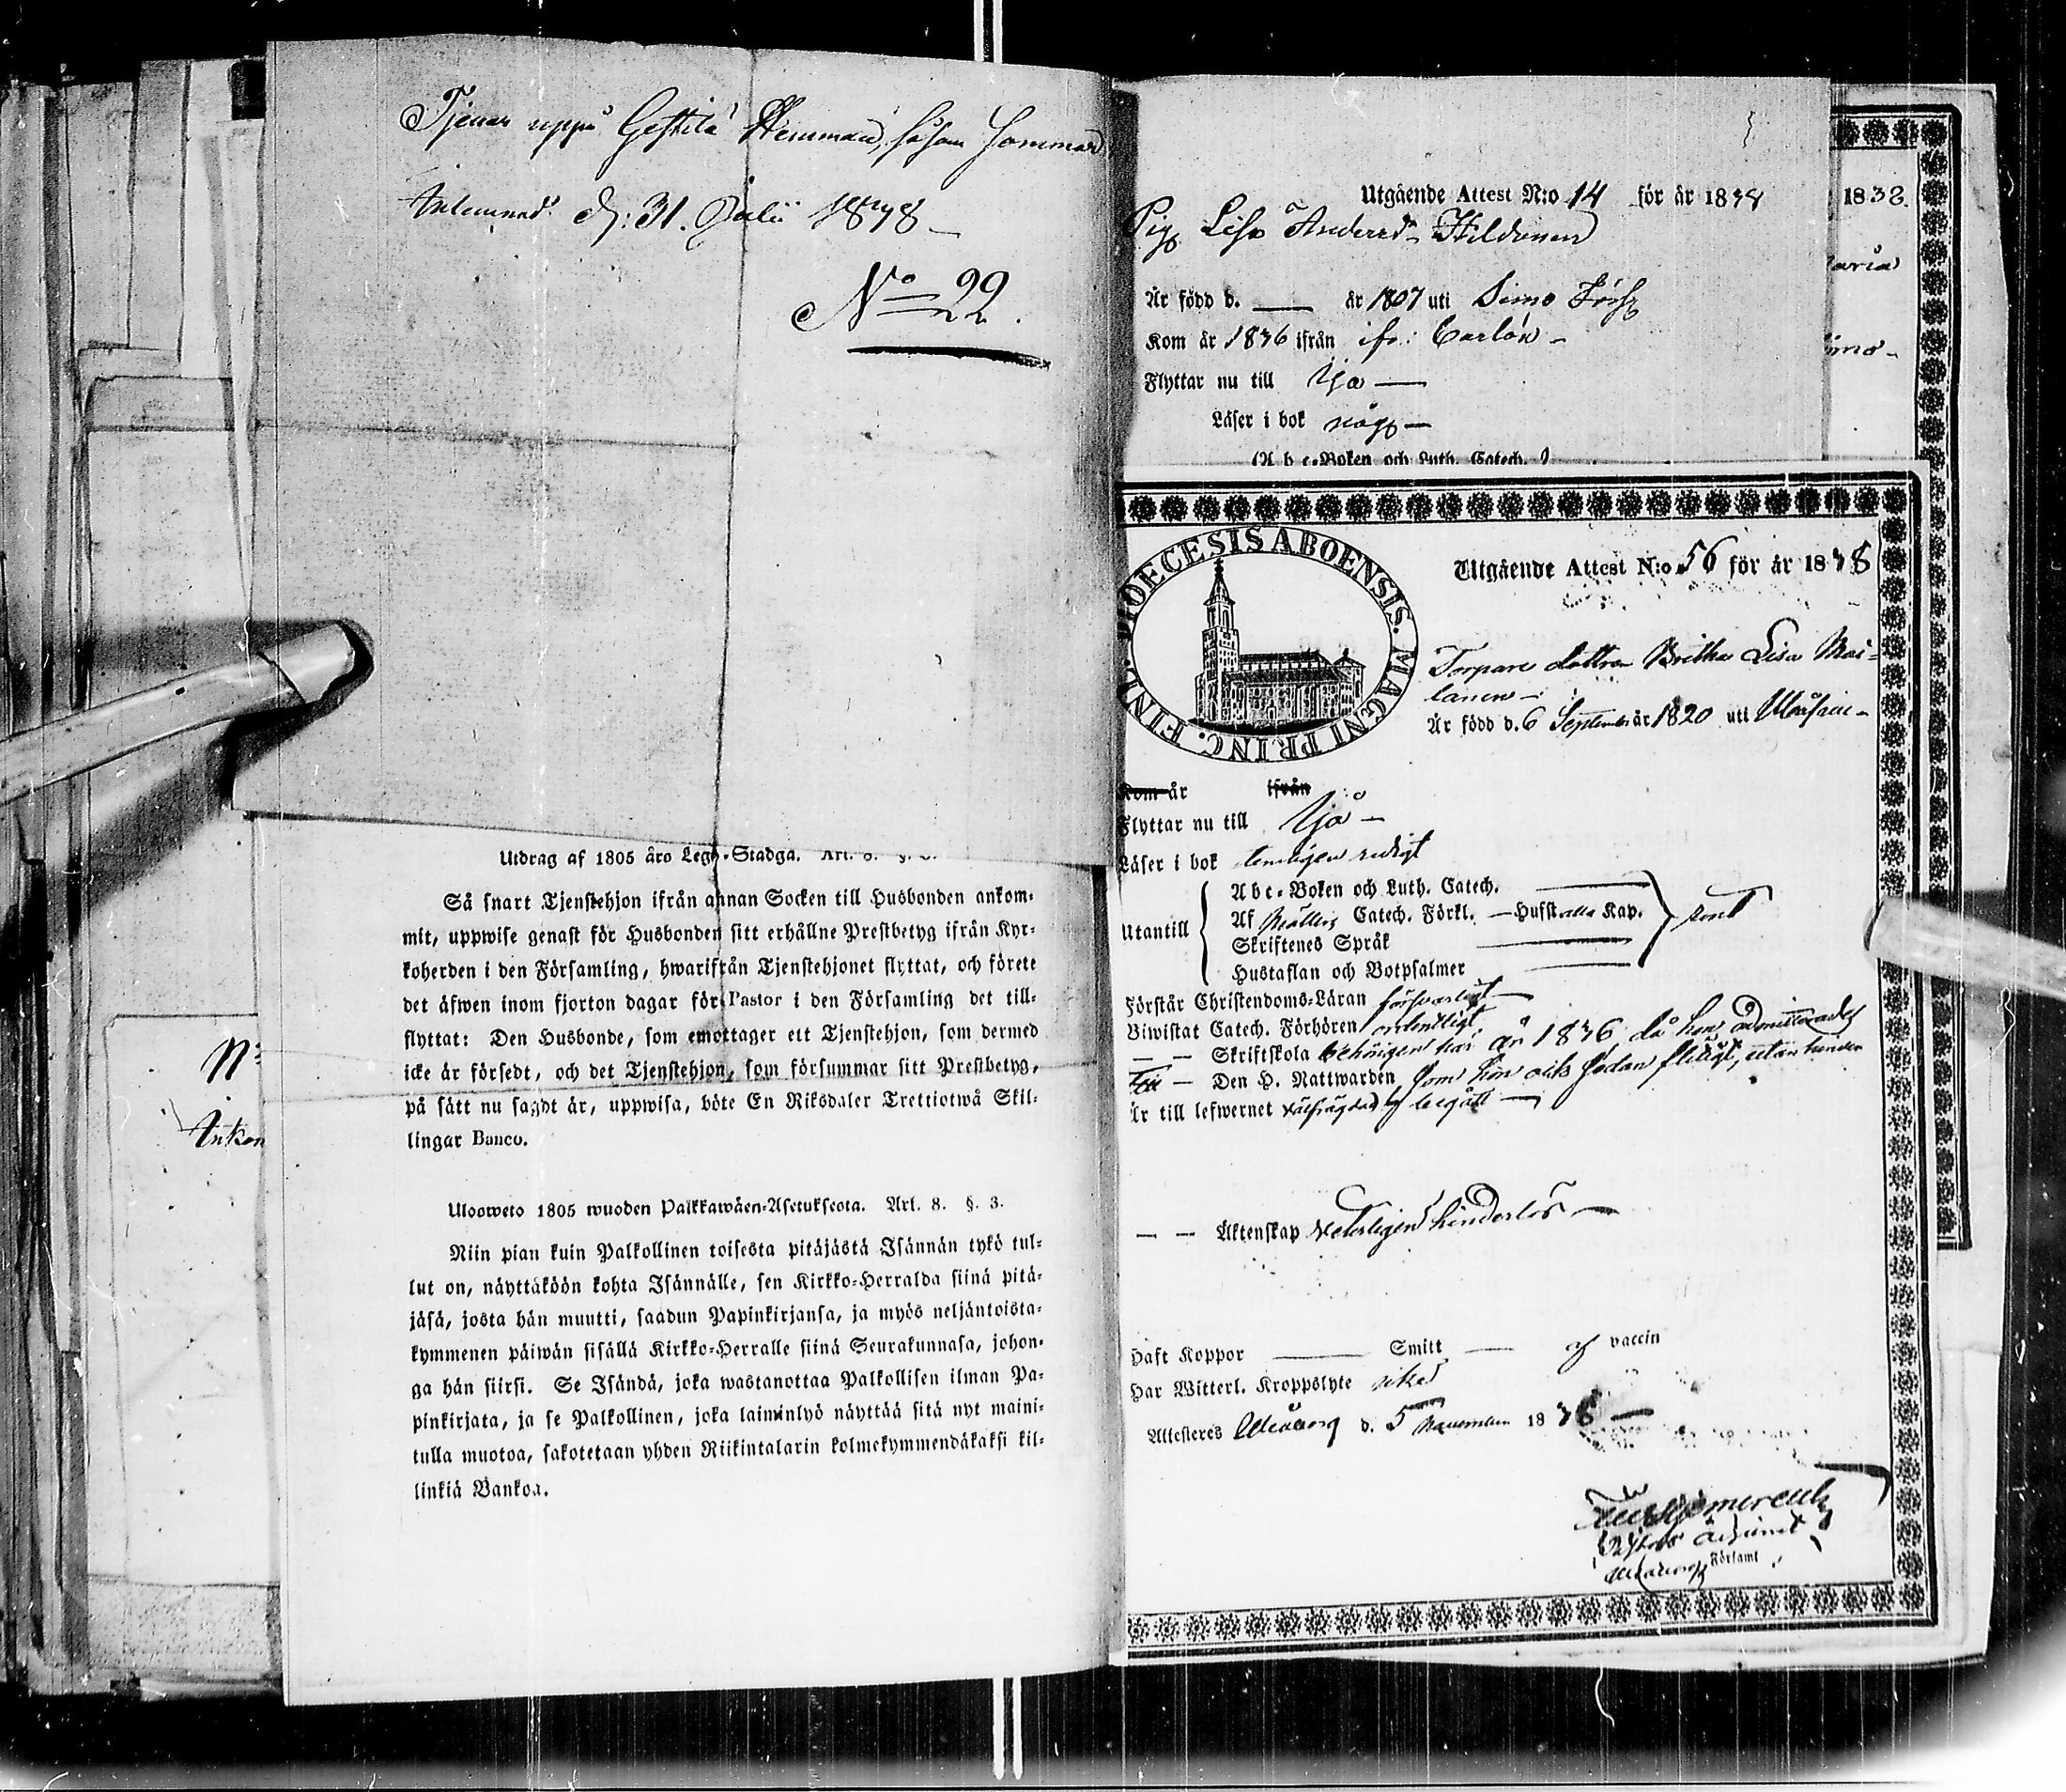 Tjenar uppå Gestilä Hemman, såsom Sommar
Inlemnad d: 31. Julii 1838
No 22.
No
Inkom
Utdrag af 1805 års Lego-Stadga. Art. 8. §.
Så snart Tjenstehjon ifrån annan Socken till Husbonden ankom-
mit, uppwise genast för Husbonden sitt erhållne Prestbetyg ifrån Kyr-
koherden i den Församling, hwarifrån Tjenstehjonet flyttat, och förete
det äfwen inom fjorton dagar för Pastor i den Församling det till-
flyttat: Den Husbonde, som emottager ett Tjenstehjon, som dermed
icke är försedt, och det Tjenstehjon, som försummar sitt Prestbetyg,
på sätt nu sagdt är, uppwisa, böte En Riksdaler Trettiotwå Skil-
lingar Banco.
Ulosweto 1805 wuoden Palkkawäen-Asetuksesta. Art. 8. §. 3.
Niin pian kuin Palkollinen toisesta pitäjästä Isännän tykö tul-
lut on, näyttäköön kohta Isännälle, sen Kirkko-Herralda siinä pitä-
jäsä, josta hän muutti, saadun Papinkirjansa, ja myös neljäntoista-
kymmenen päiwän sisällä Kirkko-Herralle siinä Seurakunnasa, johon-
ga hän siirsi. Se Isändä, joka wastanottaa Palkollisen ilman Pa-
pinkirjata, ja se Palkollinen, joka laiminlyö näyttää sitä nyt maini-
tulla muotoa, sakotetaan yhden Riikintalarin kolmekymmendäkaksi kil-
linkiä Bankoa.
1838.
aria
imo-
Utgående Attest N:o 14 för år 1838
Pig. Lisa Andersd. Hildunen
Är född d. — år 1807 uti Simo Förs.
Kom år 1836 ifrån Carlön -
Flyttar nu till Ijo —
Läser i bok någ. —
(A b c-Boken och Luth. Catech.
DIOECESIS ABOENSIS. MAGNI PRINC. FINL.
Utgående Attest N:o 56 för år 1838
Torpare dottren Britha Lisa Mai-
lanen -
Är född d. 6 September år 1820 uti
Kom år ifrån
Flyttar nu till Ijo -
Läser i bok temligen redigt
Utantill
A b c-Boken och Luth. Catech. —
Af Möllers Catech. Förkl. — Husst. alla Kap.
Skriftenes Språk —
Hustaflan och Botpsalmer —
rent
Förstår Christendoms-Läran försvarligt —
Biwistat Catech. Förhören ordentligt
— — Skriftskola behörigen här år 1836, då hon admitterades
till — Den H. Nattwarden som hon ock sedan flitigt, utan hinder
Är till lefwernet välfrägdad begått —
— — Äktenskap veterligen hinderlös —
Haft Koppor — Smitt — af vaccin
Har Witterl. Kroppslyte icke
Attesteras Uleåborg d. 5 November 1838 —
Pastors Adjunct
Uleåborgs Församl.